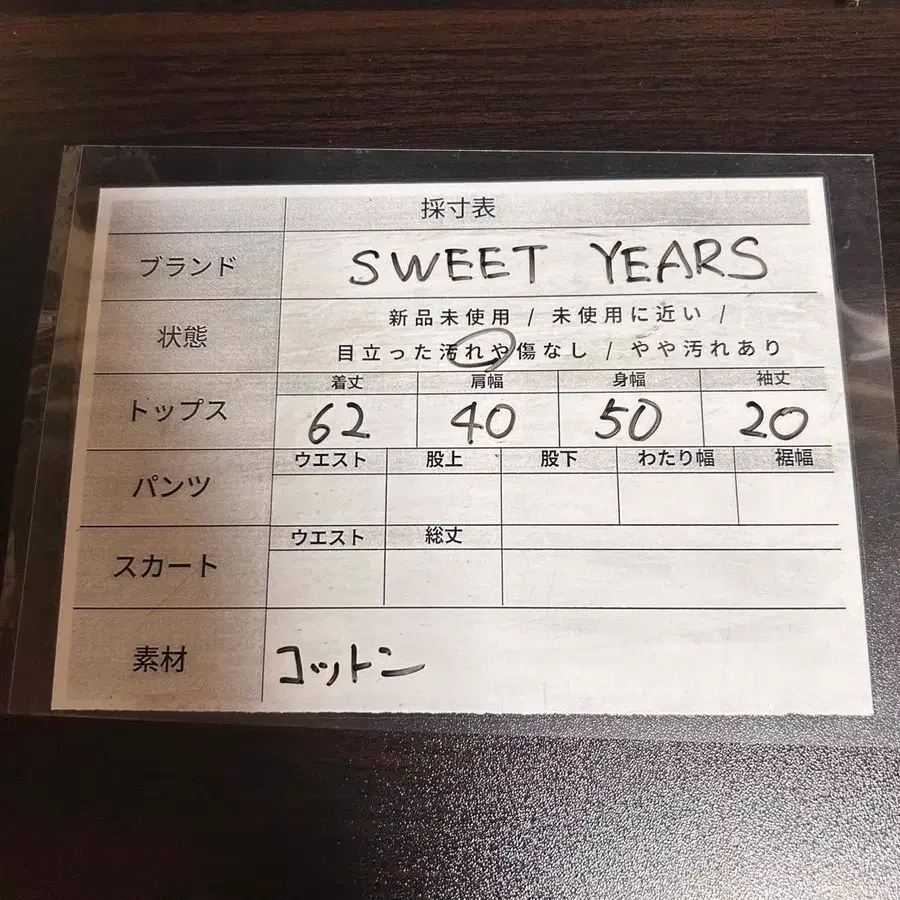 採寸表
ブランド SWEET YEARS
状態 新品未使用 / 未使用に近い /
目立った汚れや傷なし / やや汚れあり
着丈 肩幅 身幅 袖丈
トップス 62 40 50 20
ウエスト 股上 股下 わたり幅 裾幅
パンツ
ウエスト 総丈
スカート
素材 コットン